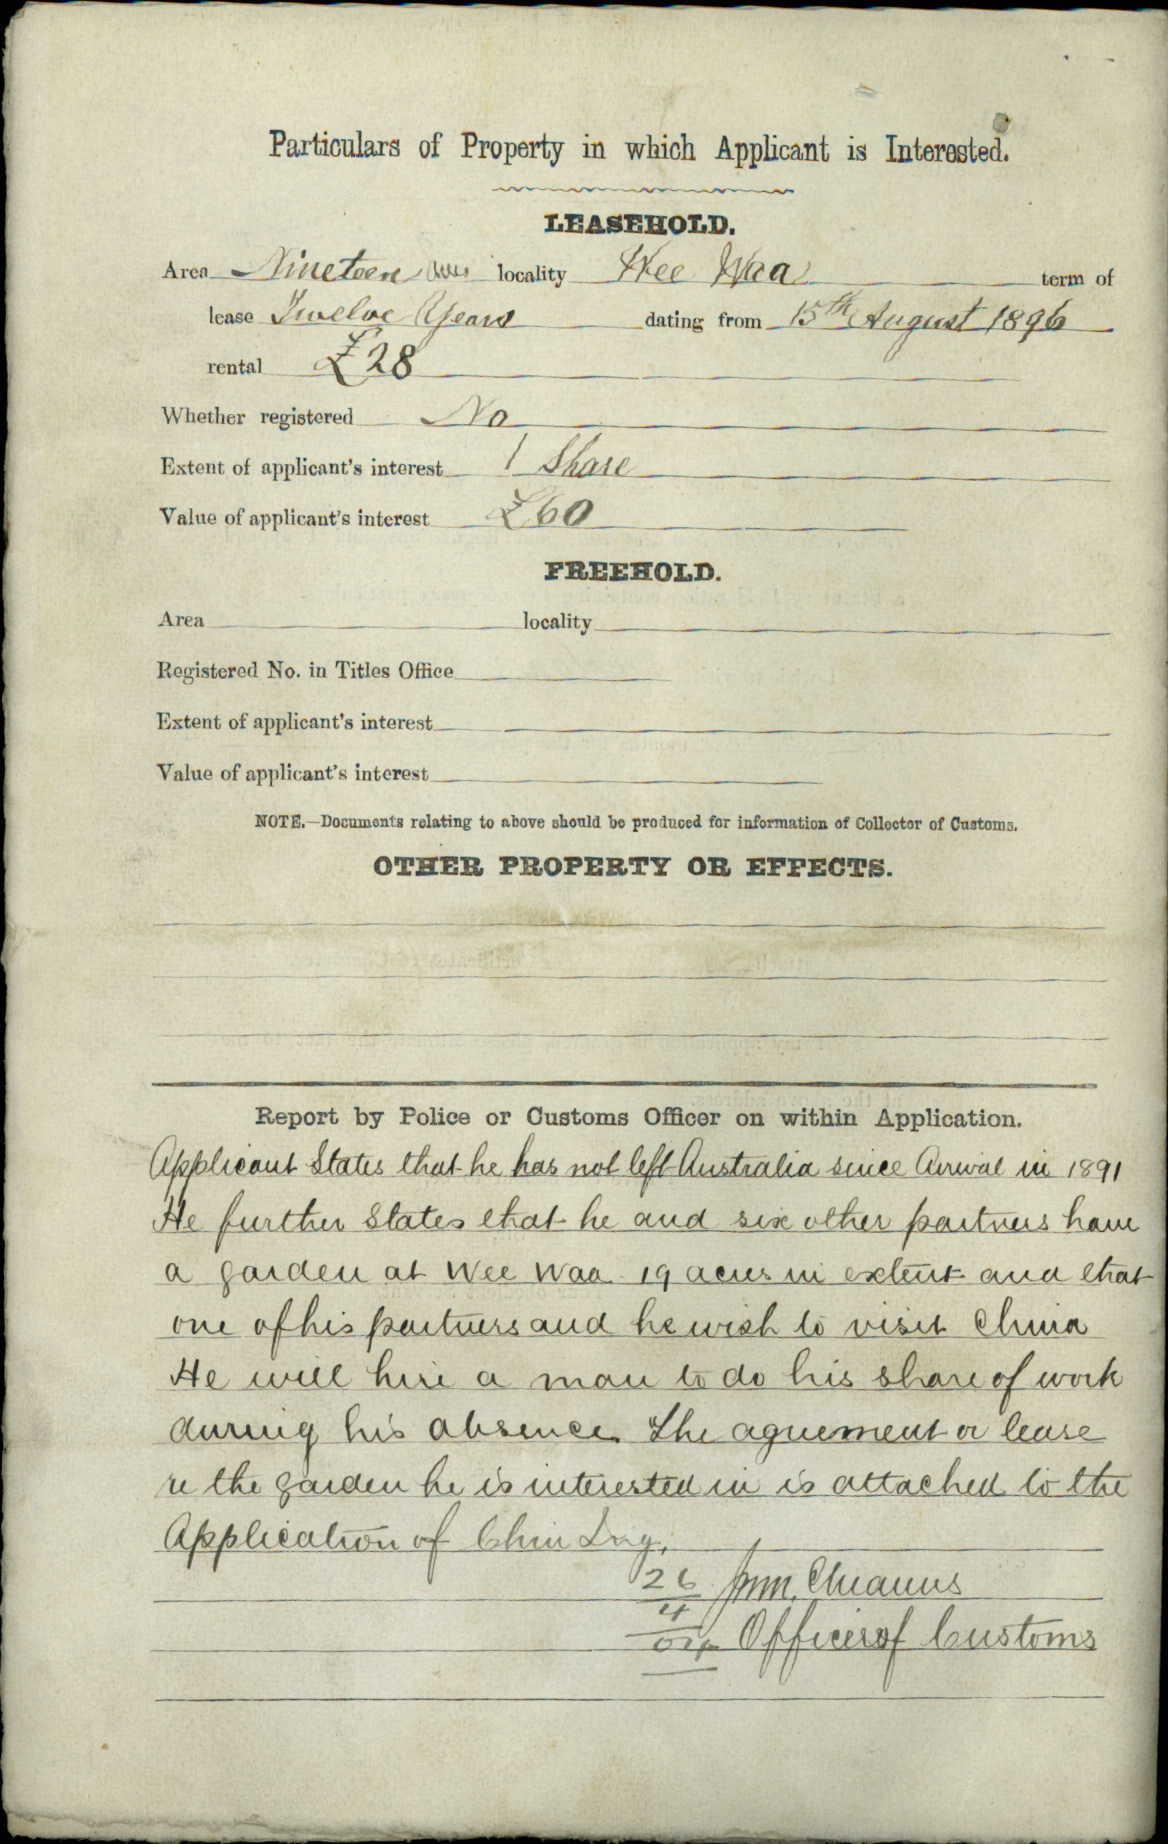 Particulars of Property in which Applicant is Interested.
LEASEHOLD.
Area Nineteen acres locality Wee Waa term of
lease Twelve Years dating from 15th August 1896
rental £28
Whether registered No
Extent of applicant's interest 1 Share
Value of applicant's interest £60
FREEHOLD.
Area locality
Registered No. in Titles Office
Extent of applicant's interest
Value of applicant's interest
NOTE.—Documents relating to above should be produced for information of Collector of Customs.
OTHER PROPERTY OR EFFECTS.
Report by Police or Customs Officer on within Application.
Applicant States that he has not left Australia since Arrival in 1891
He further States that he and six other partners have
a garden at Wee Waa 19 acres in extent and that
one of his partners and he wish to visit China
He will hire a man to do his share of work
during his absence. The agreement or lease
re the garden he is interested in is attached to the
Application of Chin
26
4
04 Officer of Customs